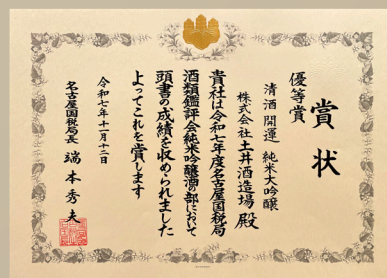 賞状
優等賞
清酒 開運 純米大吟醸
株式会社 土井酒造場 殿
貴社は令和七年度名古屋国税局
酒類鑑評会純米吟醸酒の部において
頭書の成績を収められました
よってこれを賞します
令和七年十一月十二日
名古屋国税局長 端本秀夫